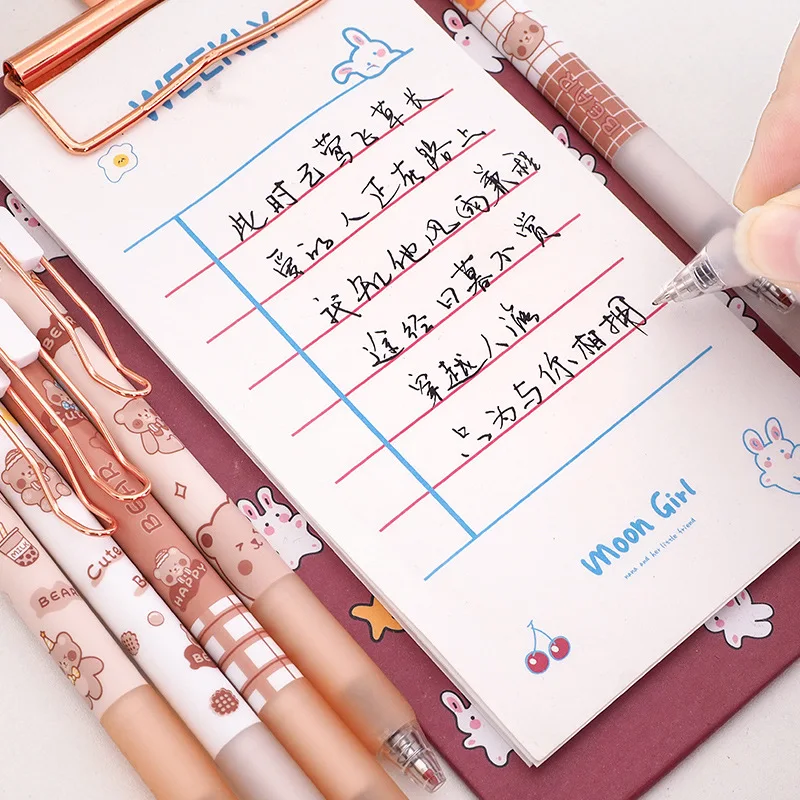 WEEKLY
此时已莺飞草长
爱的人正在路上
我知他风雨兼程
途经日暮不赏
穿越人海
只为与你相拥
Moon Girl
nana and her little friend
BEAR
BEAR
Cute
BEAR
HAPPY
MILK
BEAR
Cute